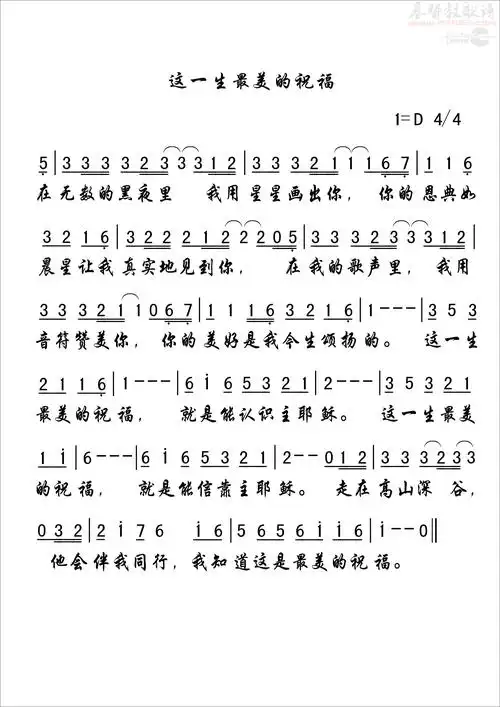 基督教歌谱
这一生最美的祝福
1=D 4/4
5|3 3 3 3 2 3 3 3 1 2|3 3 3 3 2 1 1 1 6 7|1 1 6
在无数的黑夜里 我用星星画出你， 你的恩典如
3 2 1 6|3 2 2 2 2 1 2 2 2 0 5|3 3 3 2 3 3 3 1 2|
晨星让我真实地见到你， 在我的歌声里，我用
3 3 3 2 1 1 0 6 7|1 1 1 6 3 2 1 6|1---|3 5 3
音符赞美你，你的美好是我今生颂扬的。 这一生
2 1 1 6|1---|6 i 6 5 3 2 1|2---|3 5 3 2 1|
最美的祝福， 就是能认识主耶稣。 这一生最美
1 i|6---|6 i 6 5 3 2 1|2--0 1 2|3 3 3 2 3 3
的祝福， 就是能信靠主耶稣。 走在高山深 谷，
0 3 2|2 i 7 6 i 6|5 6 5 6 i i 6|i--0||
他会伴我同行，我知道这是最美的祝福。